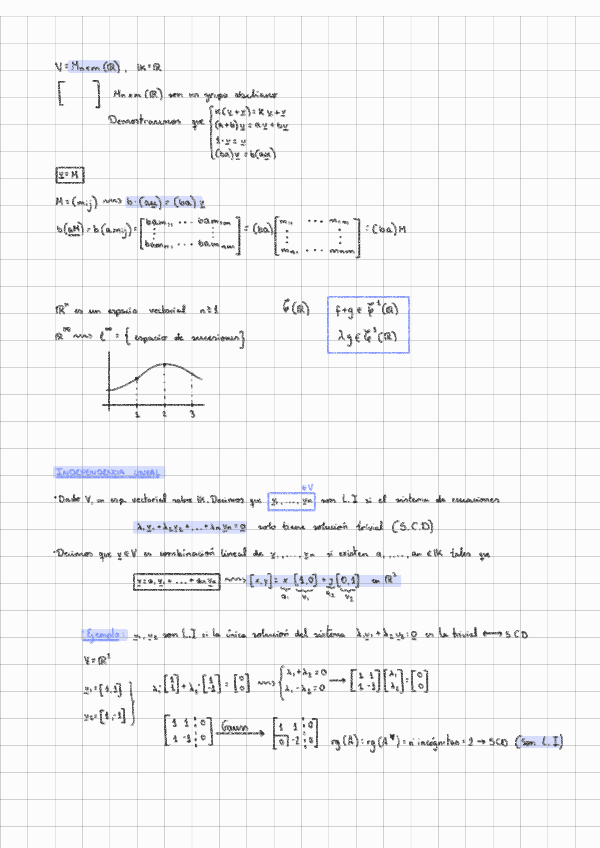 V = Mnxm (ℝ), IK = ℝ
[ ] Mnxm (ℝ) son un grupo abeliano
Demostraremos que { k(v+v) = k v + v
(a+b)v = av + bv
1·v = v
(ba)v = b(av)
v = M
M = (mij) ⟿ b·(av) = (ba) v
b(aM) = b(a mij) = [bam11 ... bam1m ⋮ ⋮ bamn1 ... bamnm] = (ba) [m11 ... m1m ⋮ ⋮ mn1 ... mnm] = (ba) M
ℝⁿ es un espacio vectorial n≥1
ℝ^∞ ⟿ ℓ^∞ = { espacio de sucesiones }
1 2 3
C(ℝ)
f+g ∈ C¹(ℝ)
λg ∈ C¹(ℝ)
INDEPENDENCIA LINEAL
∈V
·Dado V, un esp. vectorial sobre IK. Decimos que v1, ..., vn son L.I si el sistema de ecuaciones
λ1v1 + λ2v2 + ... + λnvn = 0 solo tiene solución trivial (S.C.D)
·Decimos que v ∈ V es combinación lineal de v1, ..., vn si existen a1, ..., an ∈ IK tales que
v = a1v1 + ... + anvn ⟿ [x,y] = x [1,0] + y [0,1] en ℝ²
a1 v1 a2 v2
·Ejemplo: v1, v2 son L.I si la única solución del sistema λ1v1 + λ2v2 = 0 es la trivial ⟷ SCD
V = ℝ²
v1 = [1,1]
v2 = [1,-1]
λ1 [1 1] + λ2 [1 -1] = [0 0] ⟿ { λ1+λ2=0 λ1-λ2=0 → [1 1 1 -1] [λ1 λ2] = [0 0]
[1 1 0 1 -1 0] Gauss → [1 1 0 0 -2 0] rg(A) = rg(A*) = nº incógnitas = 2 → SCD (son L.I)